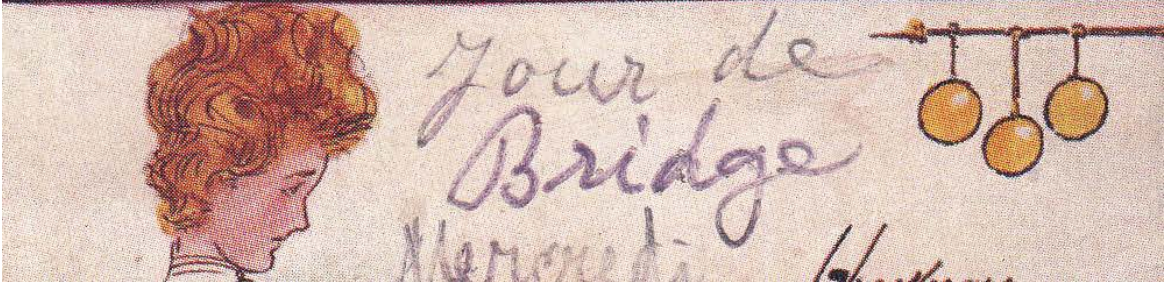 Jour de
Bridge
Mercredi